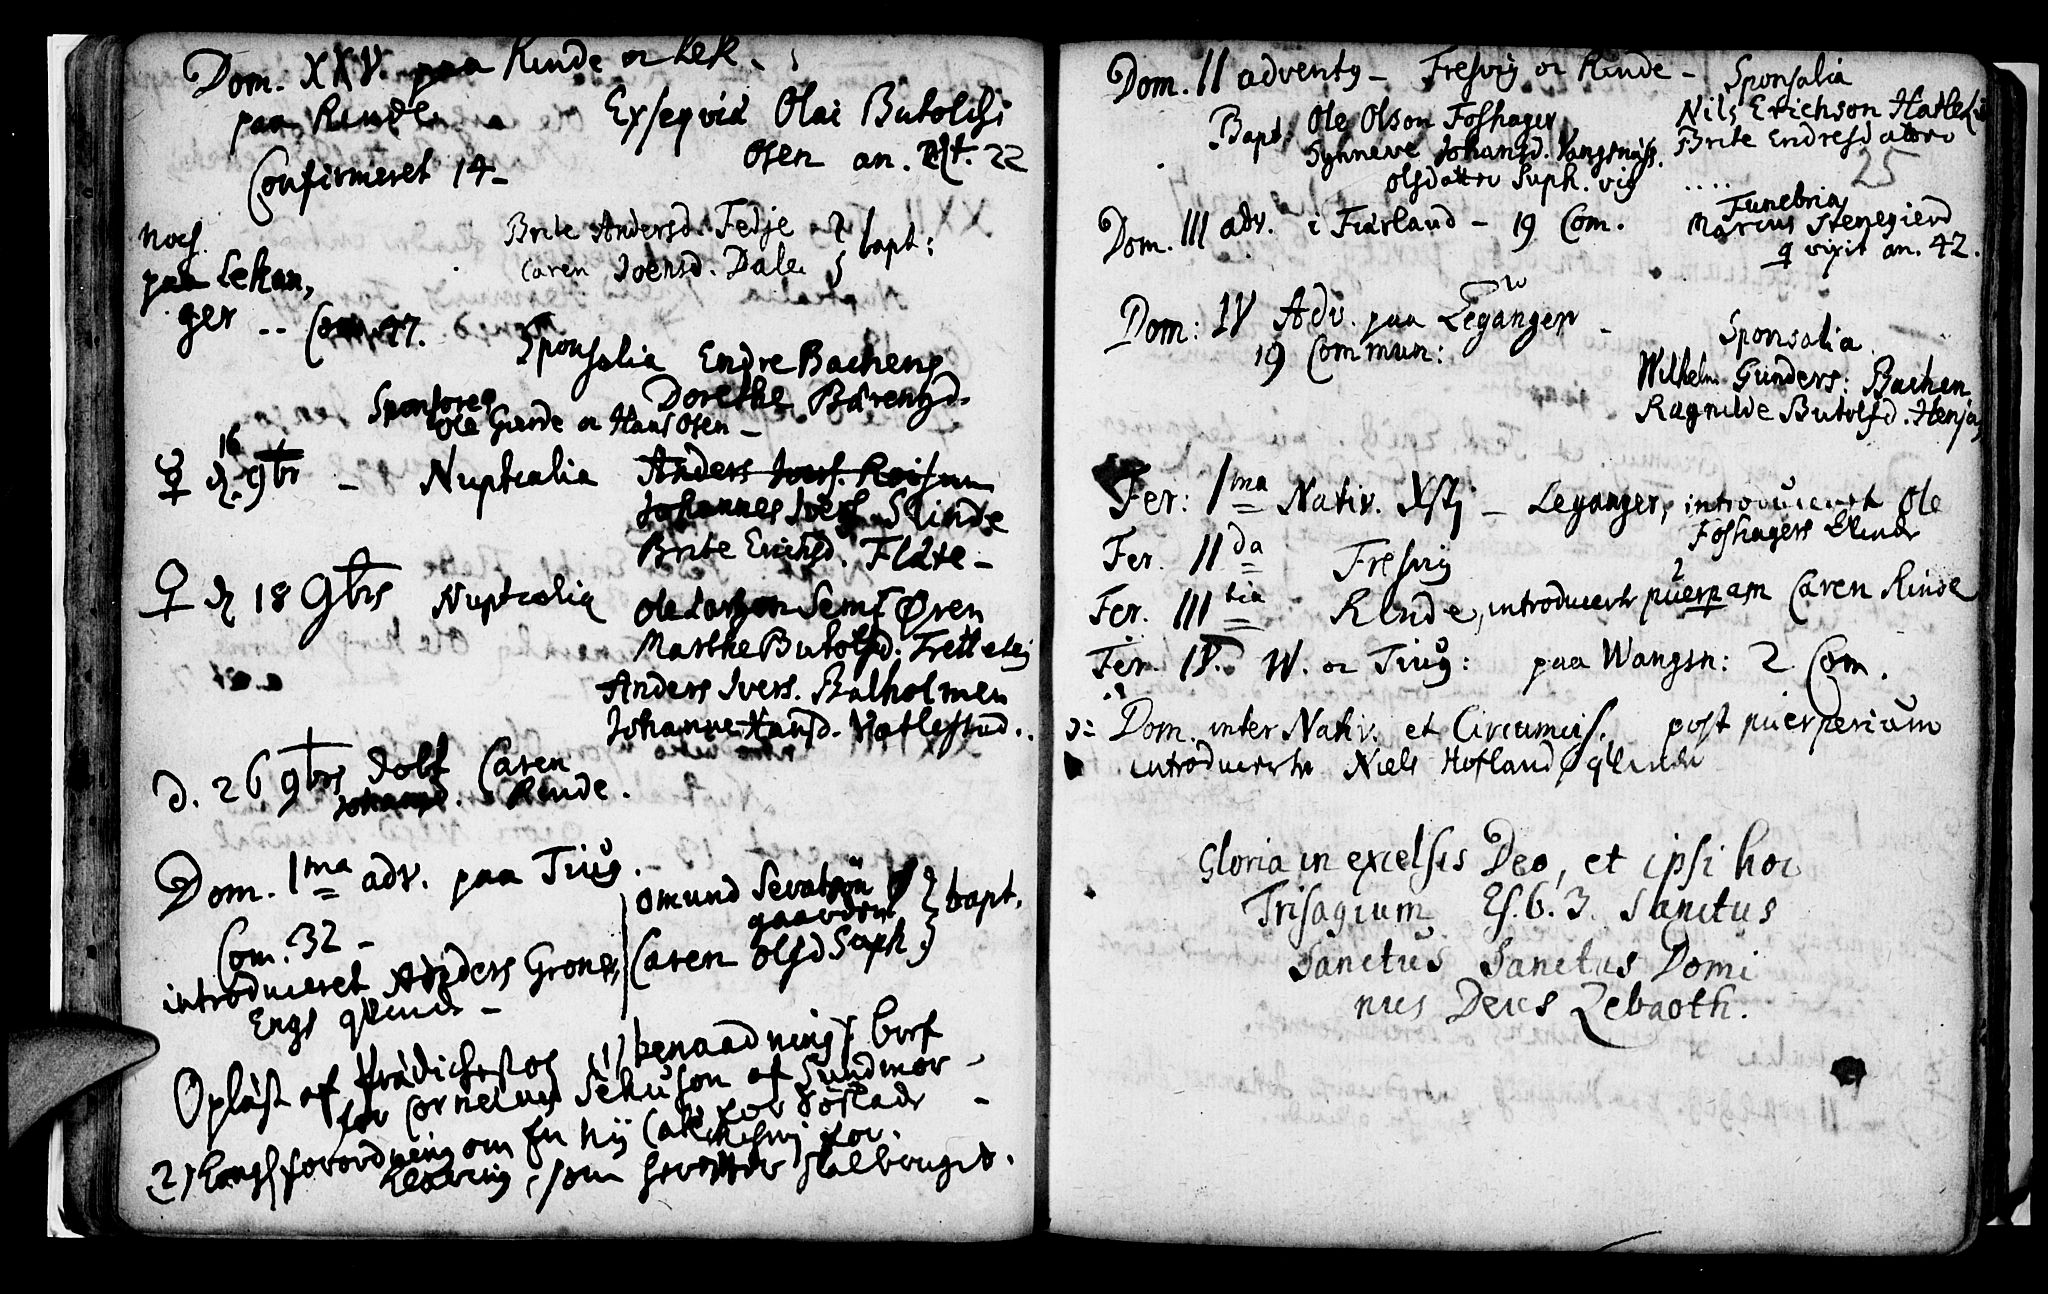 Dom. XXV. paa Rinde or Lek.
paa Rinde
Exseqviæ Olai Butolchi
Osen an. Æt. 22
Confirmeret 14 -
noch
paa Lekan,
ger -- Com. 47.
Brite Andersd. Fedje
Caren Joensd. Dale } bapt:
Sponsalia Endre Bachens
Dorethe Bärentzd.
Sponsores
Ole Gierde or Hans Osen -
☿ d. 16 9br - Nuptialia Anders Ivers. Roisum
Johannes Ivers Slinde
Brite Erichsd. Flåte -
♀ d 18 9brs Nuptialia Ole Larson Semb Øren
Marthe Butolfsd. Frettesti
Anders Ivers. Balholmen
Johanne Hansd. Natlestad..
d. 26 9brs Døbt Caren
Johansd. Rinde.
Dom. 1ma adv. paa Tiug.
Com. 32 -
introduceret Anders Grones
Engs qvinde -
Omund Sevatson
gaarden
Caren Olsd Suph. } bapt.
Oplæst af Prædichestol 1) benaadnings bref
for Cornelius Sekuson af Sundmør -
2) Kongl forordning om en ny Catechismi for
Klaring, som herefter skal brugis.
Dom. II adventg - Fresvig or Rinde -
Bapt: Ole Olson Foshager
Synneve Johansd. Vangsnäss.
Olsdatter Suph. vig
Sponsalia
Nils Erichson Hatle
Brite Endresdatter
25
Dom. III adv. i Fiärland - 19 Com.
Funebria
Marcus Stenegierd
q vixit an. 42.
Dom: IV Adv. paa Leganger -
19 Commun:
Sponsalia
Wilhelm Gunders: Bachen
Ragnilde Butolfsd. Henja
Fer: 1ma Nativ. Xsti - Leganger, introduceret Ole
Foshagers Qvinde
Fer. IIda Fresvig
Fer. IIItia Rinde, introducerte puerpam Caren Rinde
Fer. IV. W. or Tiug: paa Wangsn: 2 Com.
Dom. inter Nativ. et Circumcis. post puerperium
introducerte Niels Hofland qvinde
Gloria in excelsis Deo, et ipsi hoc
Trisagium Es. 6. 3. Sanctus
Sanctus Sanctus Domi
nus Deus Zebaoth.